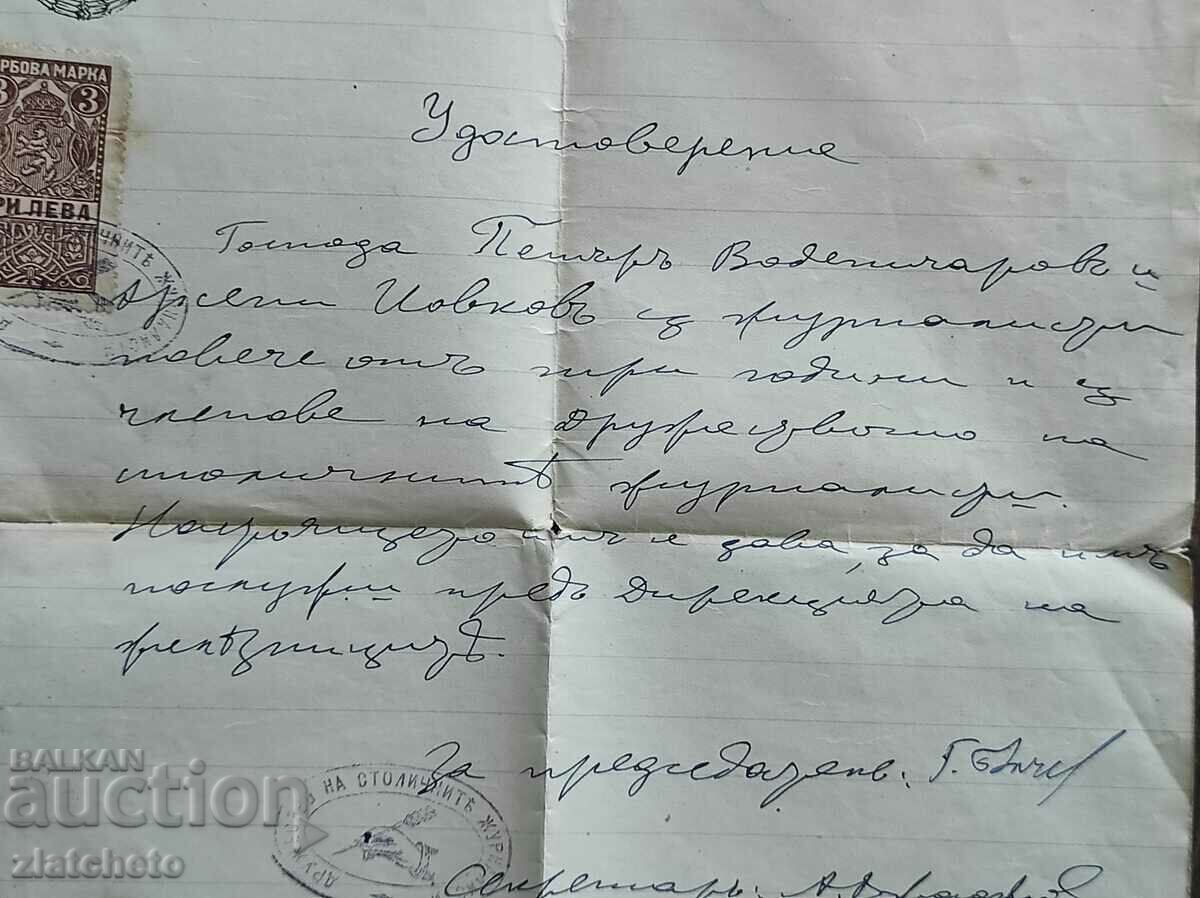 РБОВА МАРКА
3 3
РИ ЛЕВА
Удостоверение
Господа Петъръ Воденичаровъ и
Арсени Йовковъ сѫ журналисти
повече отъ три години и сѫ
членове на Дружеството на
столичнитѣ журналисти.
Настоящето имъ се дава, за да имъ
послужи предъ Дирекцията на
желѣзницитѣ.
За председателъ: Г.
Секретарь: А.
ДРУЖ НА СТОЛИЧНИТѢ ЖУРН
BALKAN
auction
zlatcheto